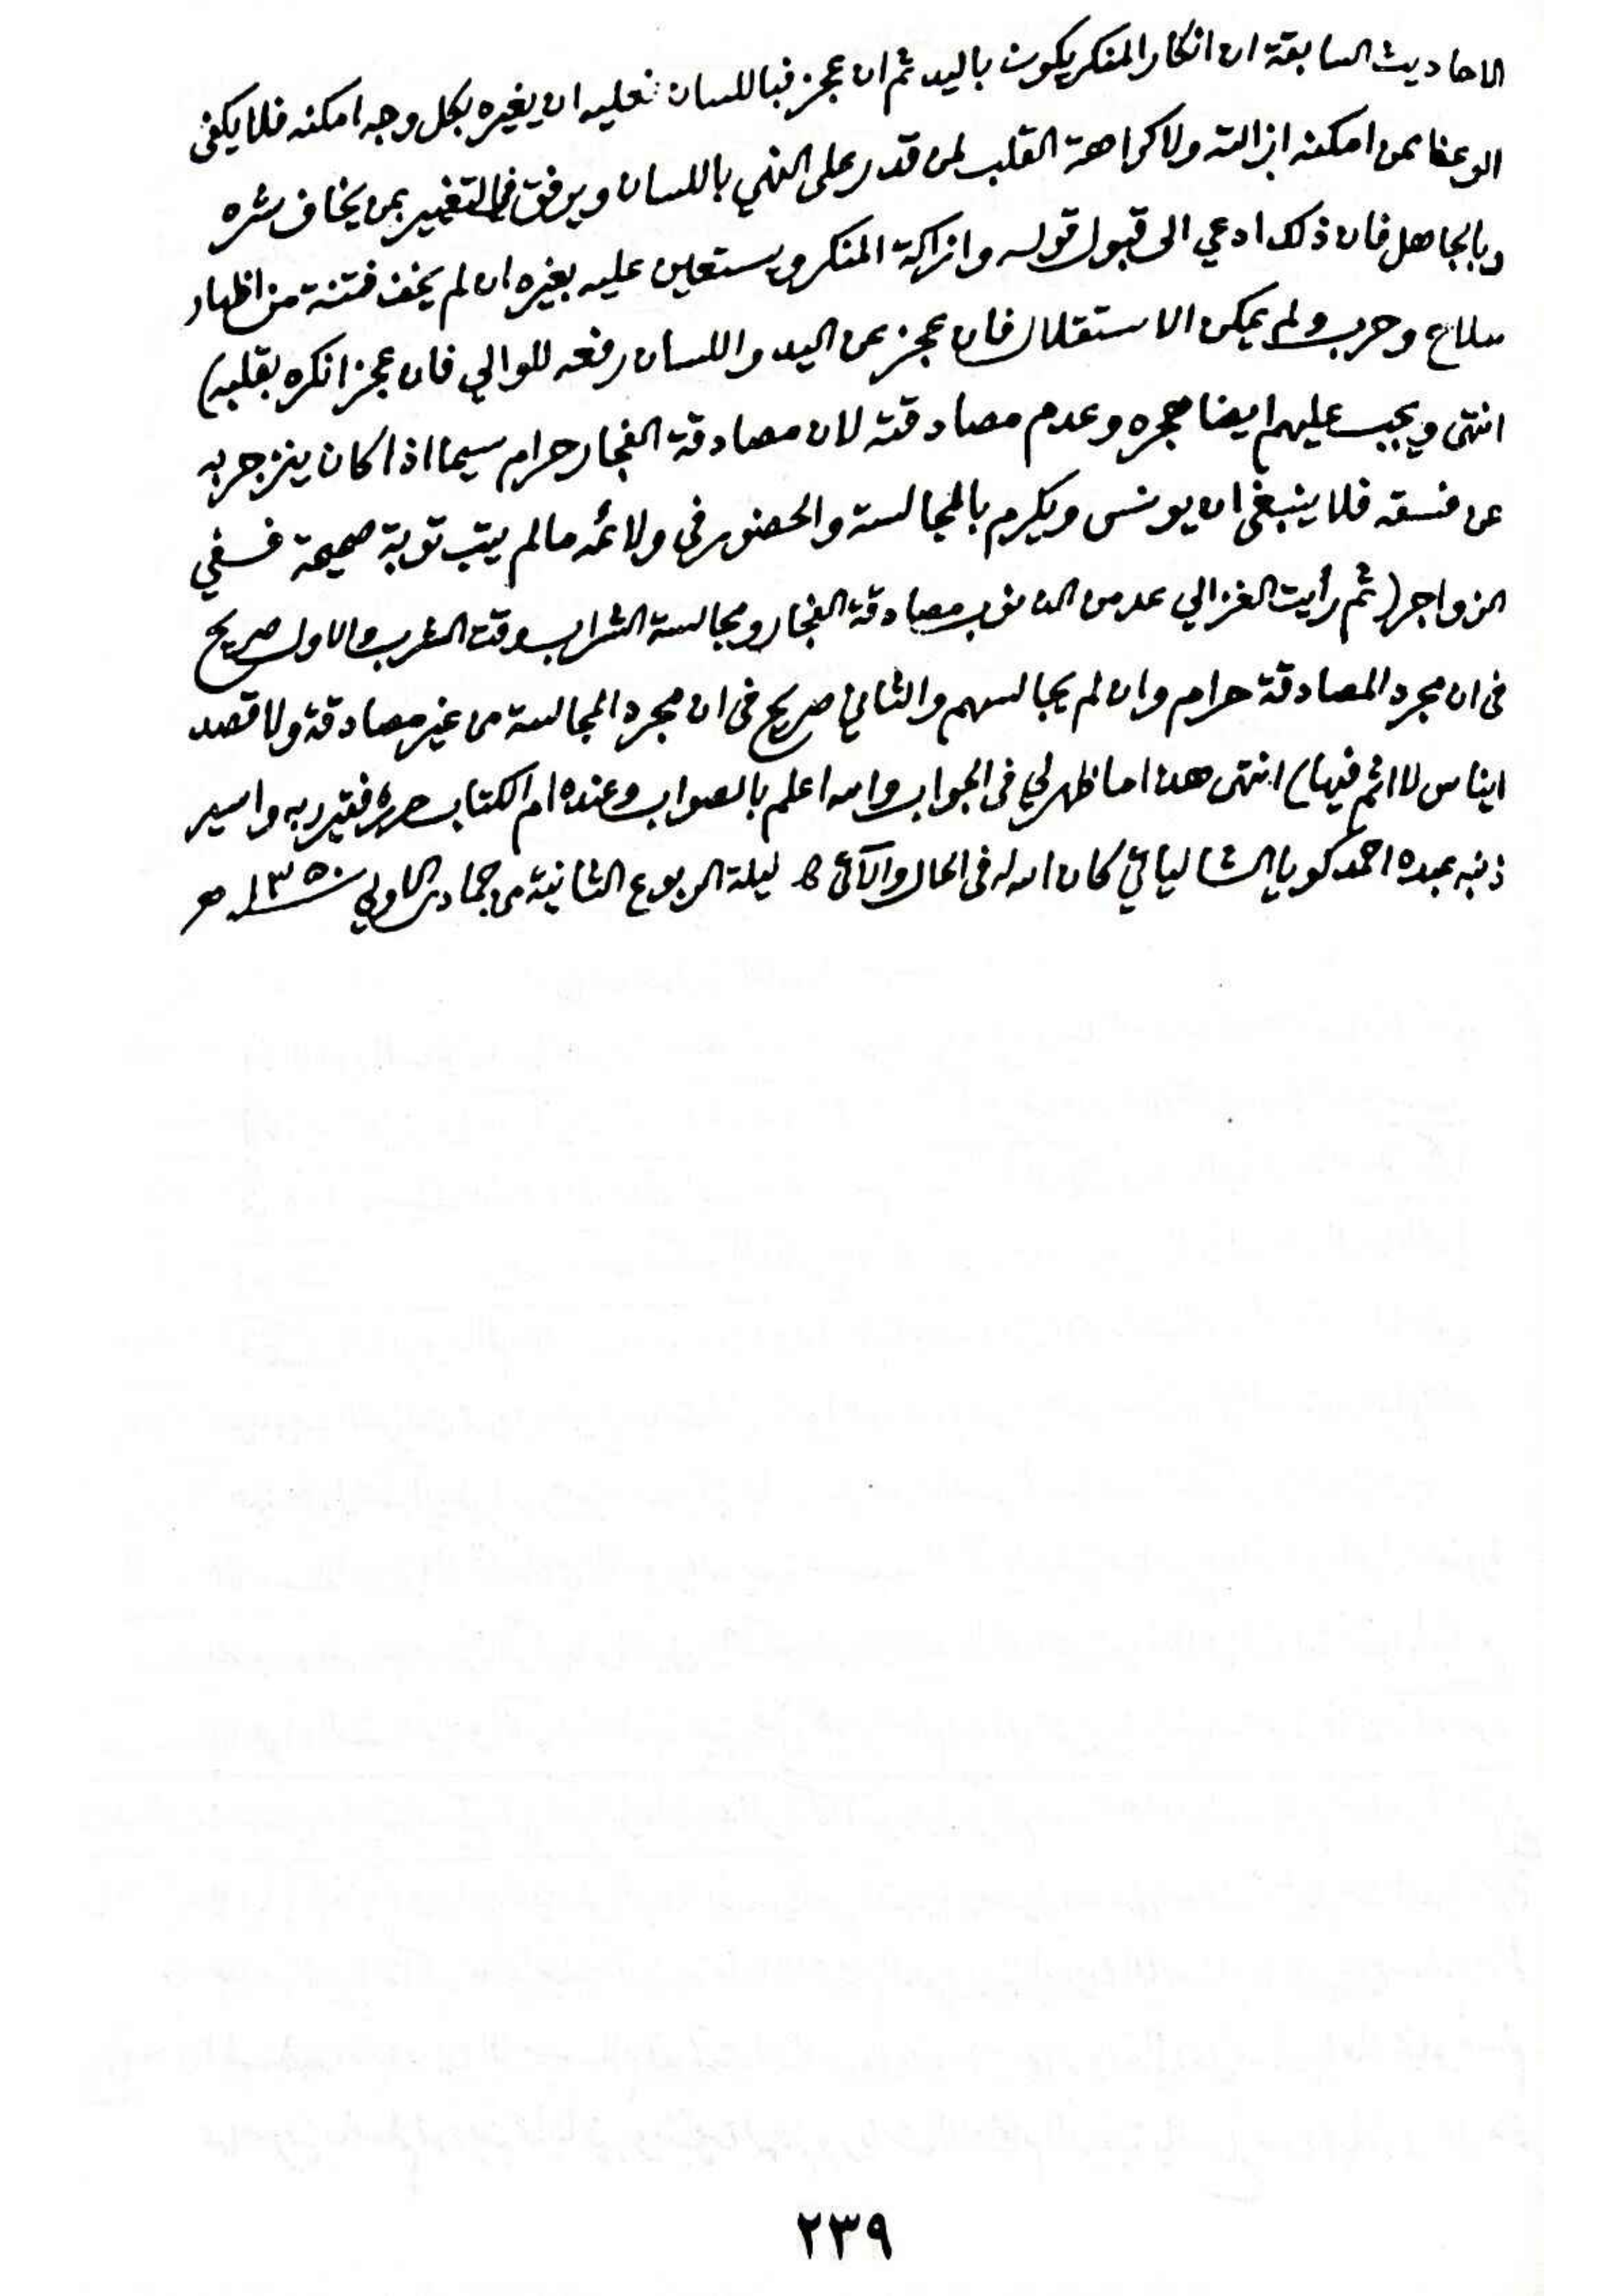 الاحاديث السابقة ان انكار المنكر يكون باليد ثم ان عجز فباللسان فعليه ان يغيره بكل وجه امكنه فلا يكفي
الوعظ لمن امكنه ازالته ولا كراهة القلب لمن قدر على النهي باللسان ويرفق في التغيير بمن يخاف شره
وبالجاهل فان ذلك ادعي الى قبول قوله وازالة المنكر ويستعين عليه بغيره ان لم يخف فتنة من اظهار
سلاح وحرب ولم يمكن الاستقلال فان عجز عن اليد واللسان رفعه للوالي فان عجز انكره بقلبه)
انتهى ويجب عليهم ايضا هجره وعدم مصادقته لان مصادقة الفجار حرام سيما اذا كان ينزجر به
عن فسقه فلا ينبغي ان يونس ويكرم بالمجالسة والحضور في ولائمه ما لم يتب توبة صحيحة ففي
الزواجر (ثم رأيت الغزالي عد من الذنوب مصادقة الفجار ومجالسة الشراب وقت الشرب والاول صريح
في ان مجرد المصادقة حرام وان لم يجالسهم والثاني صريح في ان مجرد المجالسة من غير مصادقة ولا قصد
ايناس لا اثم فيها) انتهى هذا ما ظهر لي في الجواب والله اعلم بالصواب وعنده ام الكتاب حرره فقير ربه واسير
ذنبه عبده احمد كويا الشالياتي كان الله له في الحال والآتي ليلة الربوع الثانية من جمادى الاولى سنة ١٣٥٠ هـ
٢٣٩